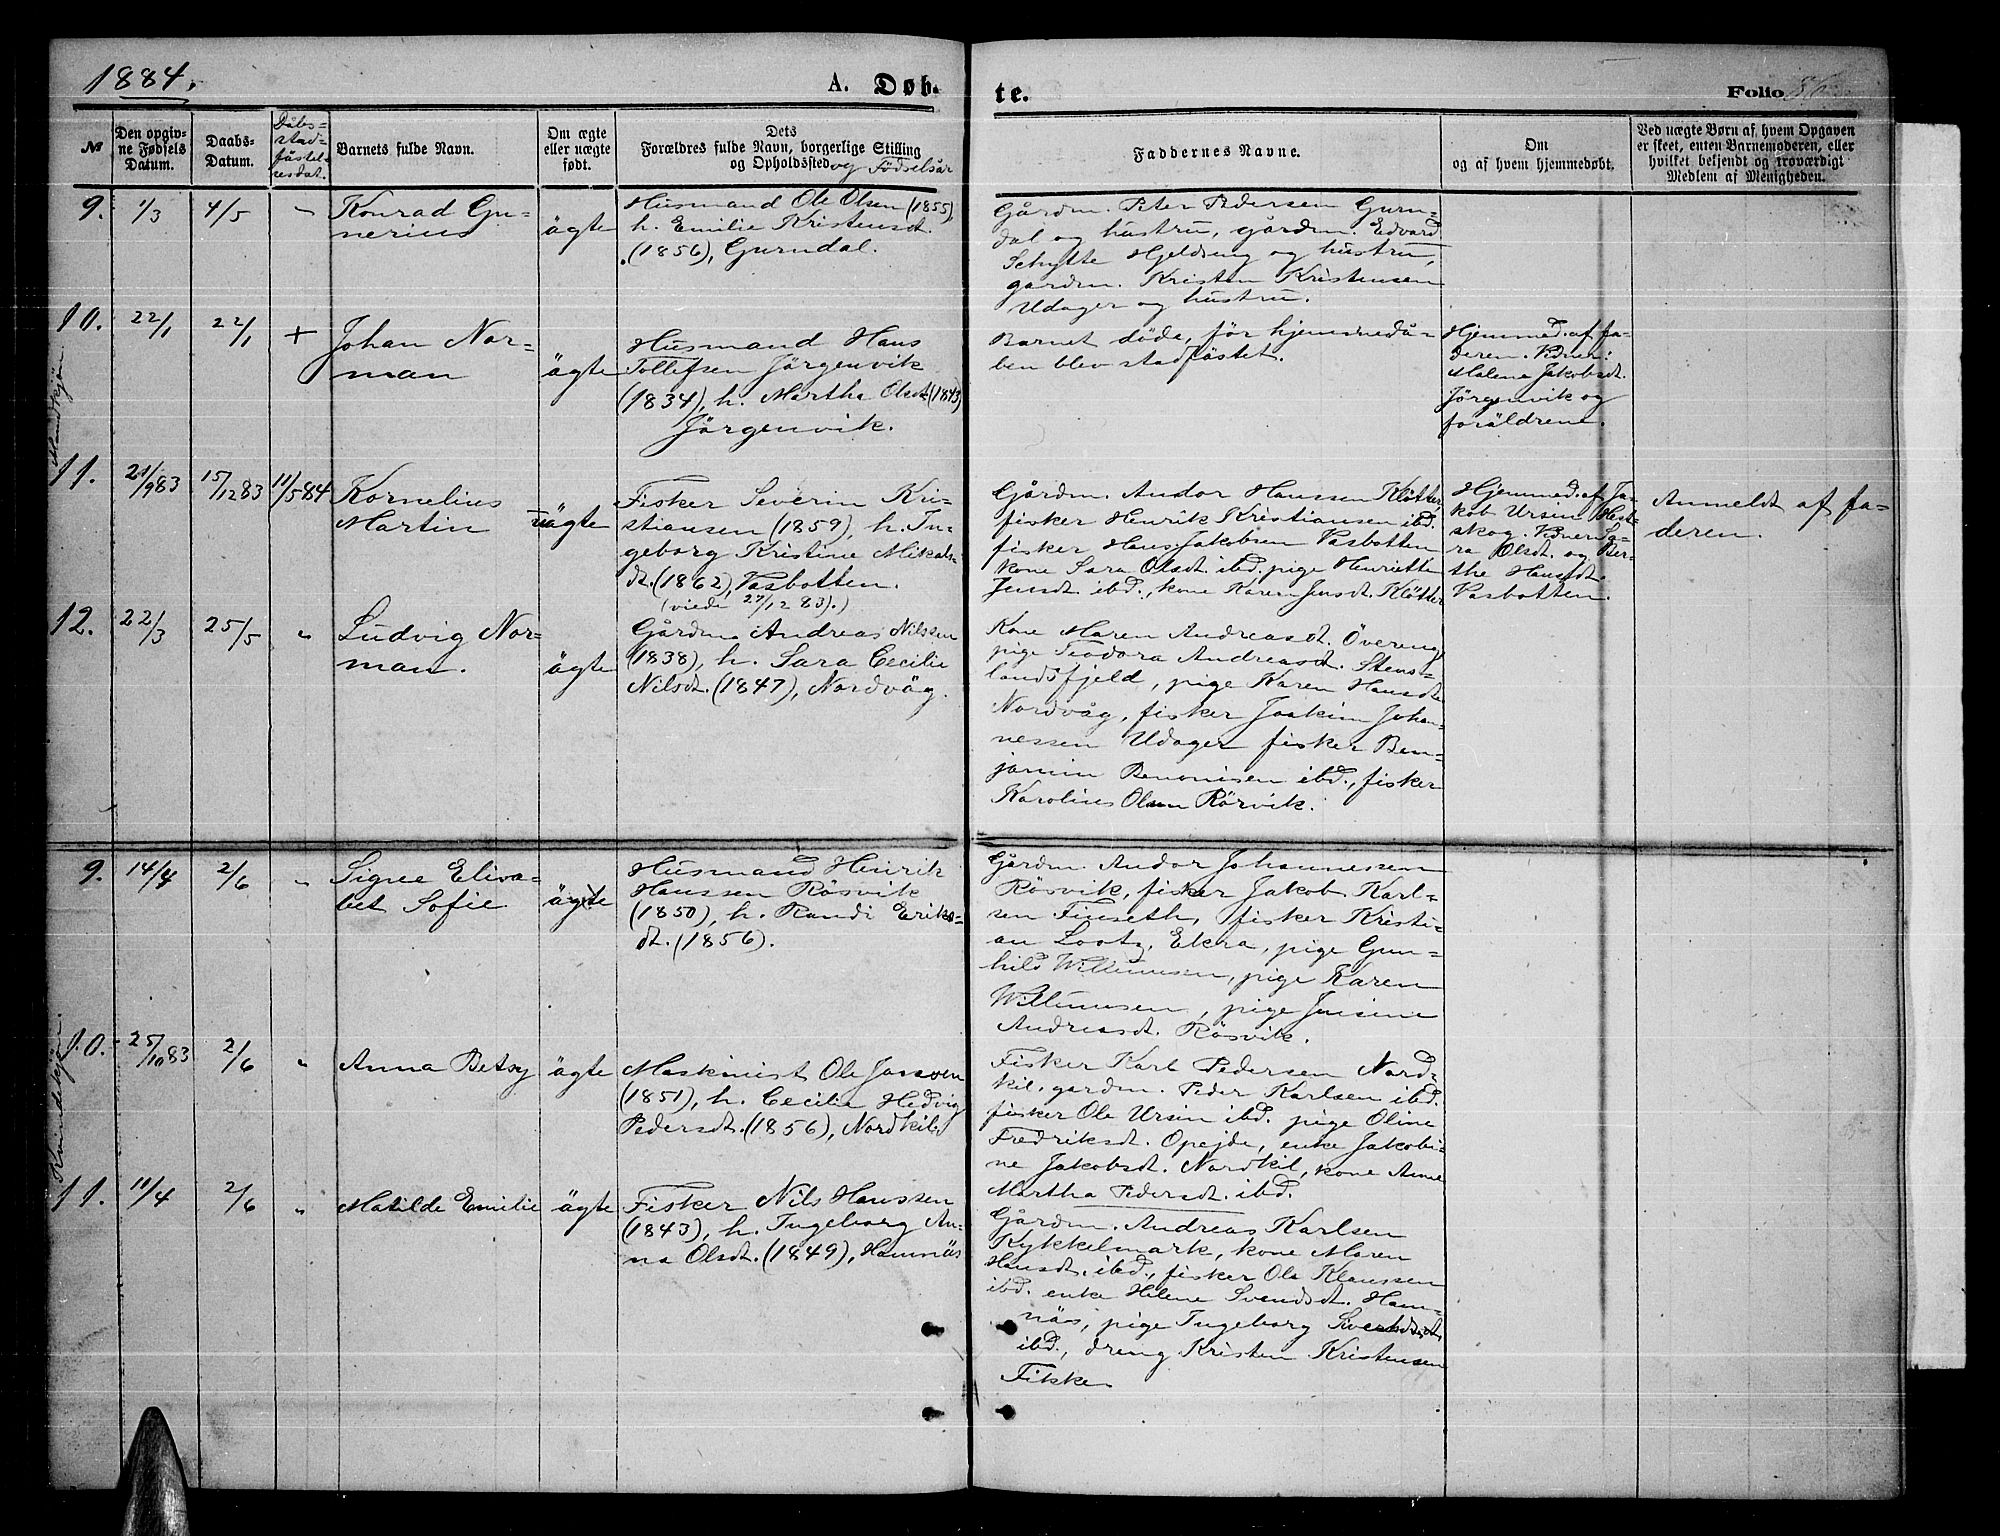 1884.
A. Døb-
te.
Folio
№
Den opgiv-
ne Fødsels
Datum.
Daabs-
Datum.
Dåbs-
stad-
fästel-
sesdat.
Barnets fulde Navn.
Om ægte
eller uægte
født.
Dets
Forældres fulde Navn, borgerlige Stilling
og Opholdssted og Födselsår
Faddernes Navne.
Om
og af hvem hjemmedøbt.
Ved uægte Børn af hvem Opgaven
er skeet, enten Barnemoderen, eller
hvilket bekjendt og troværdigt
Medlem af Menigheden.
Mandkjön.
9.
1/3
4/5
Konrad Gu-
nerius
ägte
Husmand Ole Olsen (1855),
h. Emilie Kristensdt.
(1856), Gurndal.
Gårdm. Peter Pedersen Gurn-
dal og hustru, gårdm. Edvard
Schytte Hjeldseng og hustru,
gårdm. Kristen Kristensen
Udager og hustru.
10.
22/1
22/1
+
Johan Nor-
man
ägte
Husmand Hans
Tollefsen Jörgenvik
(1834), h. Martha Olsdt. (1843)
Jörgenvik.
Barnet döde, för hjemmedå-
ben blev stadfästet.
Hjemmed. af fa-
deren. Vidner:
Malene Jakobsdt.
Jörgenvik og
foräldrene.
11.
21/9 83
15/12 83
11/5 84
Kornelius
Martin
uägte
Fisker Severin Kri-
stiansen (1859), h. In-
geborg Kristine Mikals-
dt. (1862), Vasbotten.
(viede 27/12 83).)
Gårdm. Andor Hanssen Klötter,
fisker Henrik Kristiansen ibd.
fisker Hans Jakobsen Vasbotten
kone Sara Olsdt. ibd. pige Henriette
Jensdt. ibd., kone Karen Jensdt. Klötter
Hjemmed. af Ja-
kob Ursin Hest-
skog. Vidner: Sa-
ra Olsdt. og Ber-
the Hansdt.
Vasbotten.
Anmeldt af fa-
deren.
12.
22/3
25/5
"
Ludvig Nor-
man.
ägte
Gårdm. Andreas Nilssen
(1838), h. Sara Cecilie
Nilsdt. (1847), Nordvåg.
Kone Maren Andreasdt. Övereng,
pige Teodora Andreasdt. Stens-
landsfjeld, pige Karen Hansdt.
Nordvåg, fisker Joakim Johan-
nessen Udager fisker Ben-
jamin Benonisen ibd., fisker
Karolius Olsen Rörvik.
Kvindekjön.
9.
14/4
2/6
"
Signe Elisa-
bet Sofie
ägte
Husmand Heinrik
Hanssen Rösvik
(1850), h. Randi Eriks-
dt. (1856).
Gårdm. Andor Johannessen
Rösvik, fisker Jakob Karl-
sen Finseth, fisker Kristi-
an Lootz, Ekra, pige Gun-
hild Willumsen, pige Karen
Willumsen, pige Jensine
Andreasdt. Rösvik.
10.
25/10 83
2/6
"
Anna Betsy
ägte
Maskinist Ole Jonsen
(1851), h. Cecilie Hedvig
Pedersdt. (1856), Nordkil.
Fisker Karl Pedersen Nord-
kil, gårdm. Peder Karlsen ibd.
fisker Ole Ursin ibd. pige Oline
Fredriksdt. Opejde, enke Jakobi-
ne Jakobsdt. Nordkil, kone Anne
Martha Pedersdt. ibd.
11.
11/4
2/6
"
Matilde Emilie
ägte
Fisker Nils Hanssen
(1843), h. Ingeborg An-
na Olsdt. (1849), Hamnäs
Gårdm. Andreas Karlsen
Kykkelmark, kone Maren
Hansdt. ibd., fisker Ole Klaussen
ibd. enke Helene Svendsdt. Ham-
näs, pige Ingeborg Sivertsdt.
ibd., dreng Kristen Kristensen
Fiske